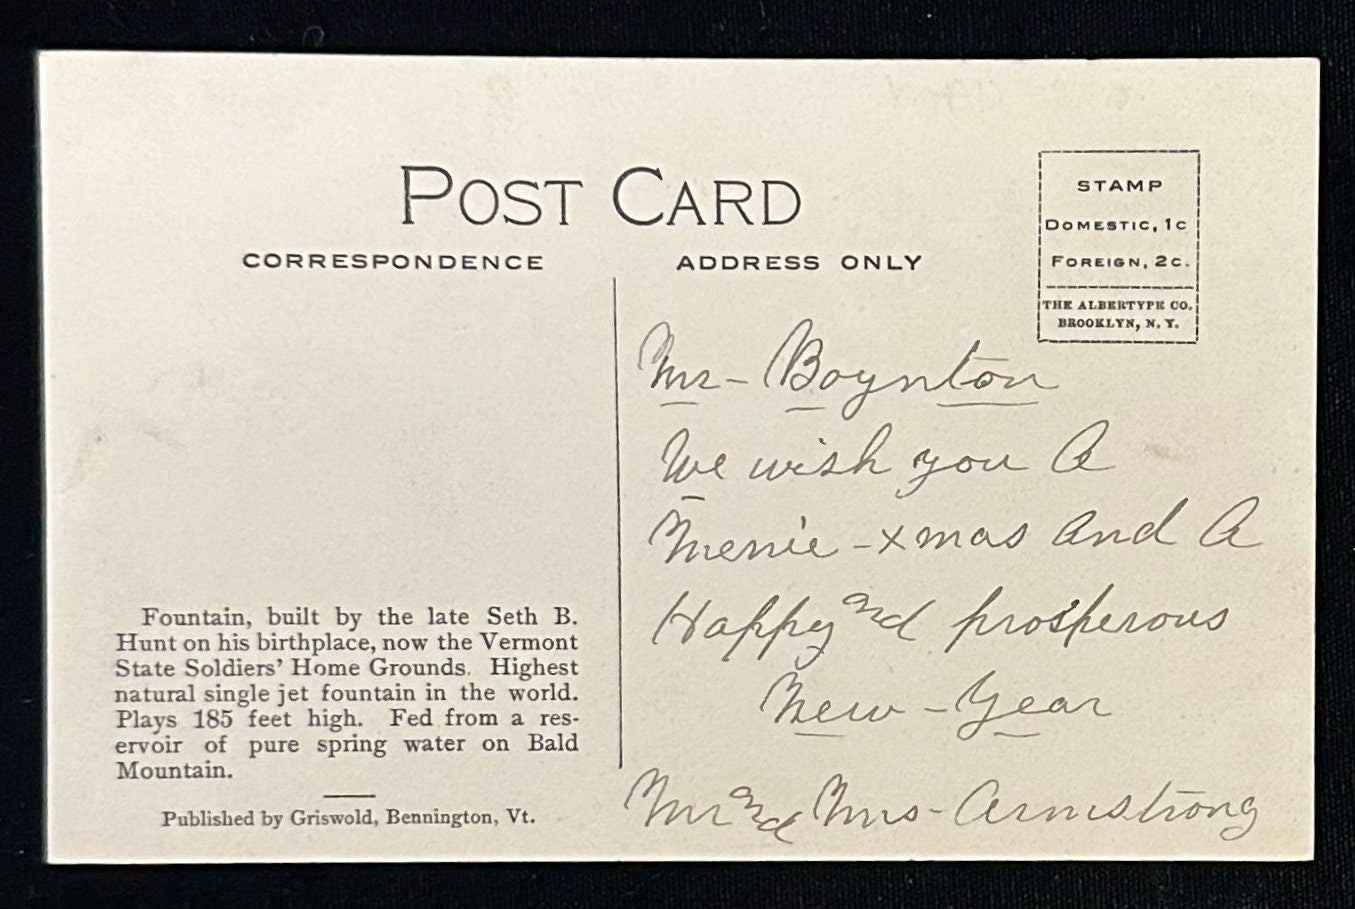 POST CARD
CORRESPONDENCE
ADDRESS ONLY
STAMP
DOMESTIC, 1C
FOREIGN, 2C.
THE ALBERTYPE CO.
BROOKLYN, N. Y.
Mr - Boynton
We wish you A
Merrie - xmas and A
Happy and prosperous
New - Year
Mr and Mrs - Armstrong
Fountain, built by the late Seth B.
Hunt on his birthplace, now the Vermont
State Soldiers' Home Grounds. Highest
natural single jet fountain in the world.
Plays 185 feet high. Fed from a res-
ervoir of pure spring water on Bald
Mountain.
Published by Griswold, Bennington, Vt.